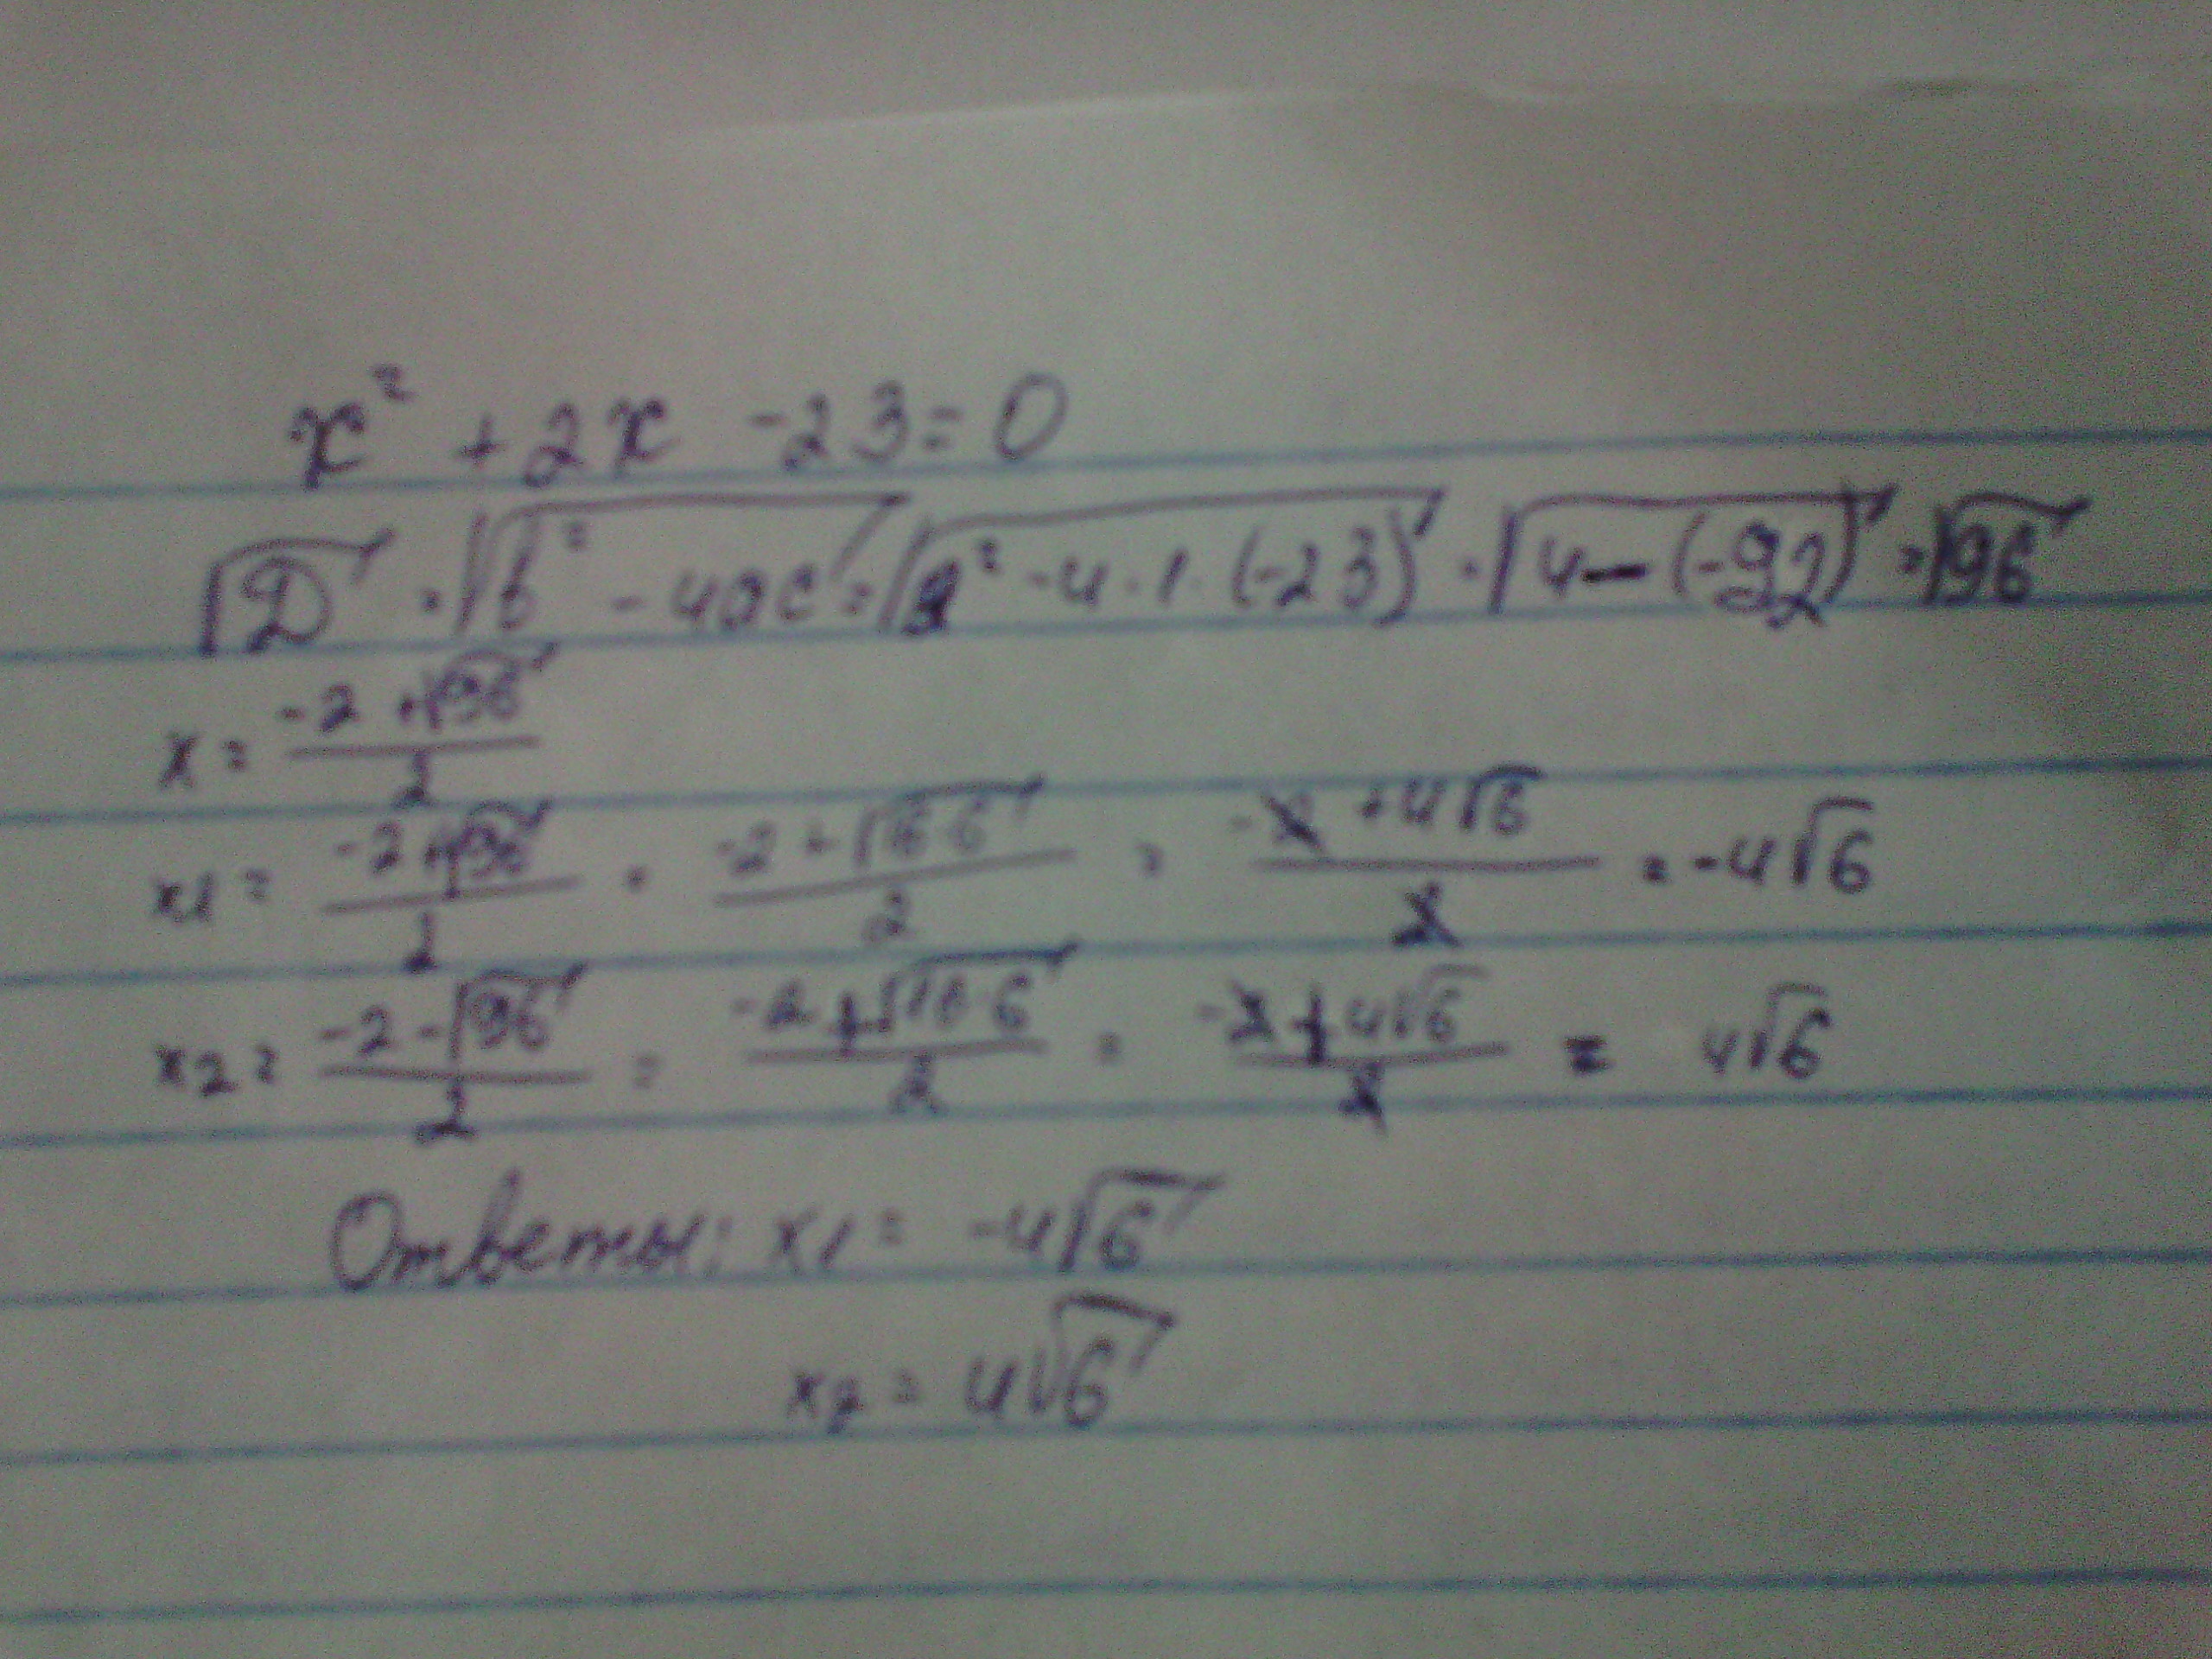 x² + 2x - 23 = 0
√D = √b² - 4ac = √2² - 4 · 1 · (-23) = √4 - (-92) = √96
x = -2 + √96 / 2
x1 = -2 + √96 / 2 = -2 + √16·6 / 2 = -2 + 4√6 / 2 = -4√6
x2 = -2 - √96 / 2 = -2 + √16·6 / 2 = -2 + 4√6 / 2 = 4√6
Ответы: x1 = -4√6
x2 = 4√6